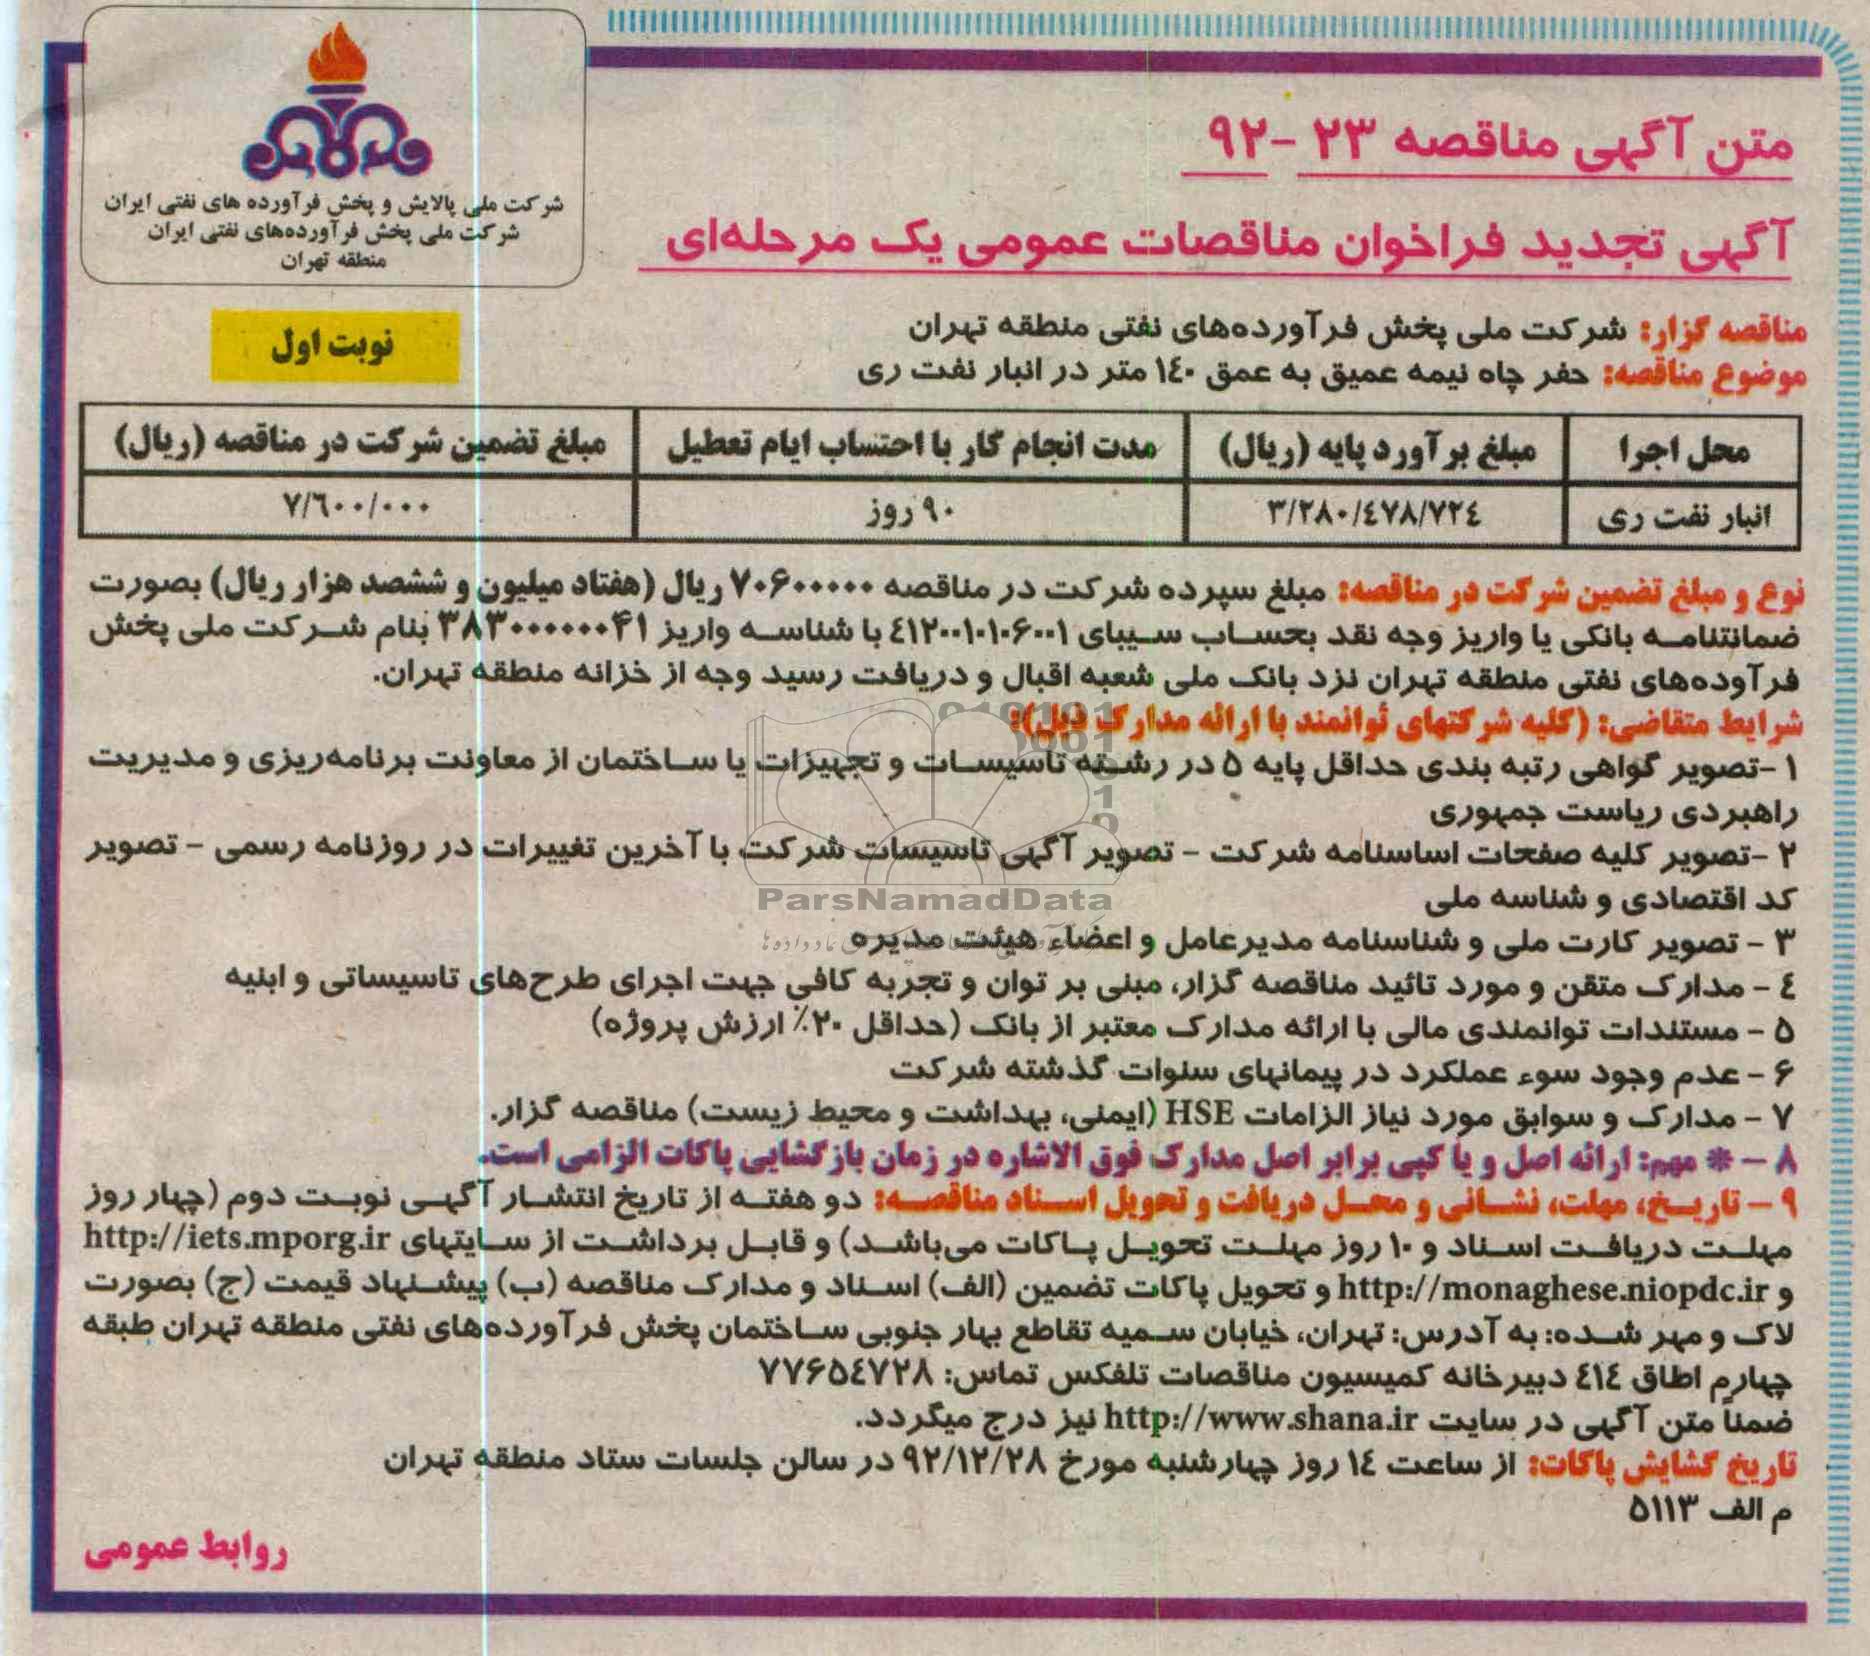 شرکت ملی پالایش و پخش فرآورده های نفتی ایران
شرکت ملی پخش فرآورده‌های نفتی ایران
منطقه تهران
متن آگهی مناقصه ۲۳ -۹۲
آگهی تجدید فراخوان مناقصات عمومی یک مرحله‌ای
نوبت اول
مناقصه گزار: شرکت ملی پخش فرآورده‌های نفتی منطقه تهران
موضوع مناقصه: حفر چاه نیمه عمیق به عمق ۱٤۰ متر در انبار نفت ری
محل اجرا	مبلغ برآورد پایه (ریال)	مدت انجام کار با احتساب ایام تعطیل	مبلغ تضمین شرکت در مناقصه (ریال)
انبار نفت ری	۳/۲۸۰/٤۷۸/۷۲٤	۹۰ روز	۷/٦۰۰/۰۰۰
نوع و مبلغ تضمین شرکت در مناقصه: مبلغ سپرده شرکت در مناقصه ۷۰۶۰۰۰۰۰ ریال (هفتاد میلیون و ششصد هزار ریال) بصورت
ضمانتنامه بانکی یا واریز وجه نقد بحساب سیبای ٤۱۲۰۰۱۰۱۰۶۰۰۱ با شناسه واریز ۳۸۳۰۰۰۰۰۰۰۴۱ بنام شرکت ملی پخش
فرآوده‌های نفتی منطقه تهران نزد بانک ملی شعبه اقبال و دریافت رسید وجه از خزانه منطقه تهران.
شرایط متقاضی: (کلیه شرکتهای توانمند با ارائه مدارک ذیل):
۱ -تصویر گواهی رتبه بندی حداقل پایه ۵ در رشته تاسیسات و تجهیزات یا ساختمان از معاونت برنامه‌ریزی و مدیریت
راهبردی ریاست جمهوری
۲ -تصویر کلیه صفحات اساسنامه شرکت - تصویر آگهی تاسیسات شرکت با آخرین تغییرات در روزنامه رسمی - تصویر
کد اقتصادی و شناسه ملی
ParsNamadData
۳ - تصویر کارت ملی و شناسنامه مدیرعامل و اعضاء هیئت مدیره
٤ - مدارک متقن و مورد تائید مناقصه گزار، مبنی بر توان و تجربه کافی جهت اجرای طرح‌های تاسیساتی و ابنیه
۵ - مستندات توانمندی مالی با ارائه مدارک معتبر از بانک (حداقل ۲۰٪ ارزش پروژه)
۶ - عدم وجود سوء عملکرد در پیمانهای سنوات گذشته شرکت
۷ - مدارک و سوابق مورد نیاز الزامات HSE (ایمنی، بهداشت و محیط زیست) مناقصه گزار.
۸ - * مهم: ارائه اصل و یا کپی برابر اصل مدارک فوق الاشاره در زمان بازگشایی پاکات الزامی است.
۹ - تاریخ، مهلت، نشانی و محل دریافت و تحویل اسناد مناقصه: دو هفته از تاریخ انتشار آگهی نوبت دوم (چهار روز
مهلت دریافت اسناد و ۱۰ روز مهلت تحویل پاکات می‌باشد) و قابل برداشت از سایتهای http://iets.mporg.ir
و http://monaghese.niopdc.ir و تحویل پاکات تضمین (الف) اسناد و مدارک مناقصه (ب) پیشنهاد قیمت (ج) بصورت
لاک و مهر شده: به آدرس: تهران، خیابان سمیه تقاطع بهار جنوبی ساختمان پخش فرآورده‌های نفتی منطقه تهران طبقه
چهارم اطاق ٤۱٤ دبیرخانه کمیسیون مناقصات تلفکس تماس: ۷۷۶۵٤۷۲۸
ضمناً متن آگهی در سایت http://www.shana.ir نیز درج میگردد.
تاریخ گشایش پاکات: از ساعت ۱٤ روز چهارشنبه مورخ ۹۲/۱۲/۲۸ در سالن جلسات ستاد منطقه تهران
م الف ۵۱۱۳
روابط عمومی